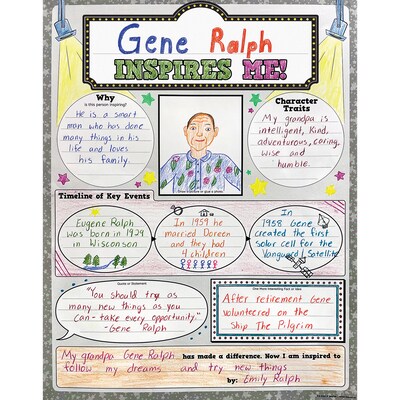 Gene Ralph
INSPIRES ME!
Why
Is this person inspiring?
He is a smart
man who has done
many things in his
life and loves
his family.
Character
Traits
My grandpa is
intelligent, Kind,
adventurous, caring,
wise and
humble.
Timeline of Key Events
Eugene Ralph
was born in 1929
in Wisconson
In 1959 he
married Doreen
and they had
4 children
In
1958 Gene
created the first
solar cell for the
Vanguard 1 Satellite
Quote or Statement
"You should try as
many new things as you
can - take every opportunity."
-Gene Ralph
One More Interesting Fact or Idea
After retirement Gene
volunteered on the
Ship The Pilgrim
My grandpa Gene Ralph has made a difference. Now I am inspired to
follow my dreams and try new things
by: Emily Ralph